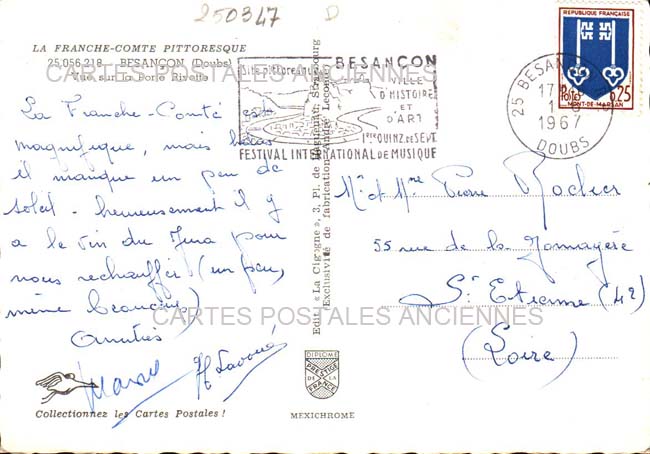 250347 D
LA FRANCHE-COMTE PITTORESQUE
25.056.218 - BESANÇON (Doubs)
Vue sur la Porte Rivotte
CARTES POSTALES ANCIENNES
La Franche-Comté est
magnifique, mais hélas
il manque un peu de
soleil - heureusement il y
a le vin du Jura pour
nous réchauffer (un peu,
même beaucoup)
Amitiés
Collectionnez les Cartes Postales !
Edit. « La Cigogne », 3, Pl. de Haguenau, Strasbourg
Exclusivité de fabrication André Leconte
DIPLOME
PRESTIGE
DE LA
FRANCE
MEXICHROME
Site pittoresque
BESANÇON
VILLE
D'HISTOIRE
ET
D'ART
1ère QUINZ. DE SEPT.
FESTIVAL INTERNATIONAL DE MUSIQUE
25 BESANÇON
17H
1967
DOUBS
REPUBLIQUE FRANÇAISE
Postes 0,25
MONT-DE-MARSAN
Mr et Mme Pierre
55 rue de la
St Etienne (42)
(Loire)
CARTES POSTALES ANCIENNES